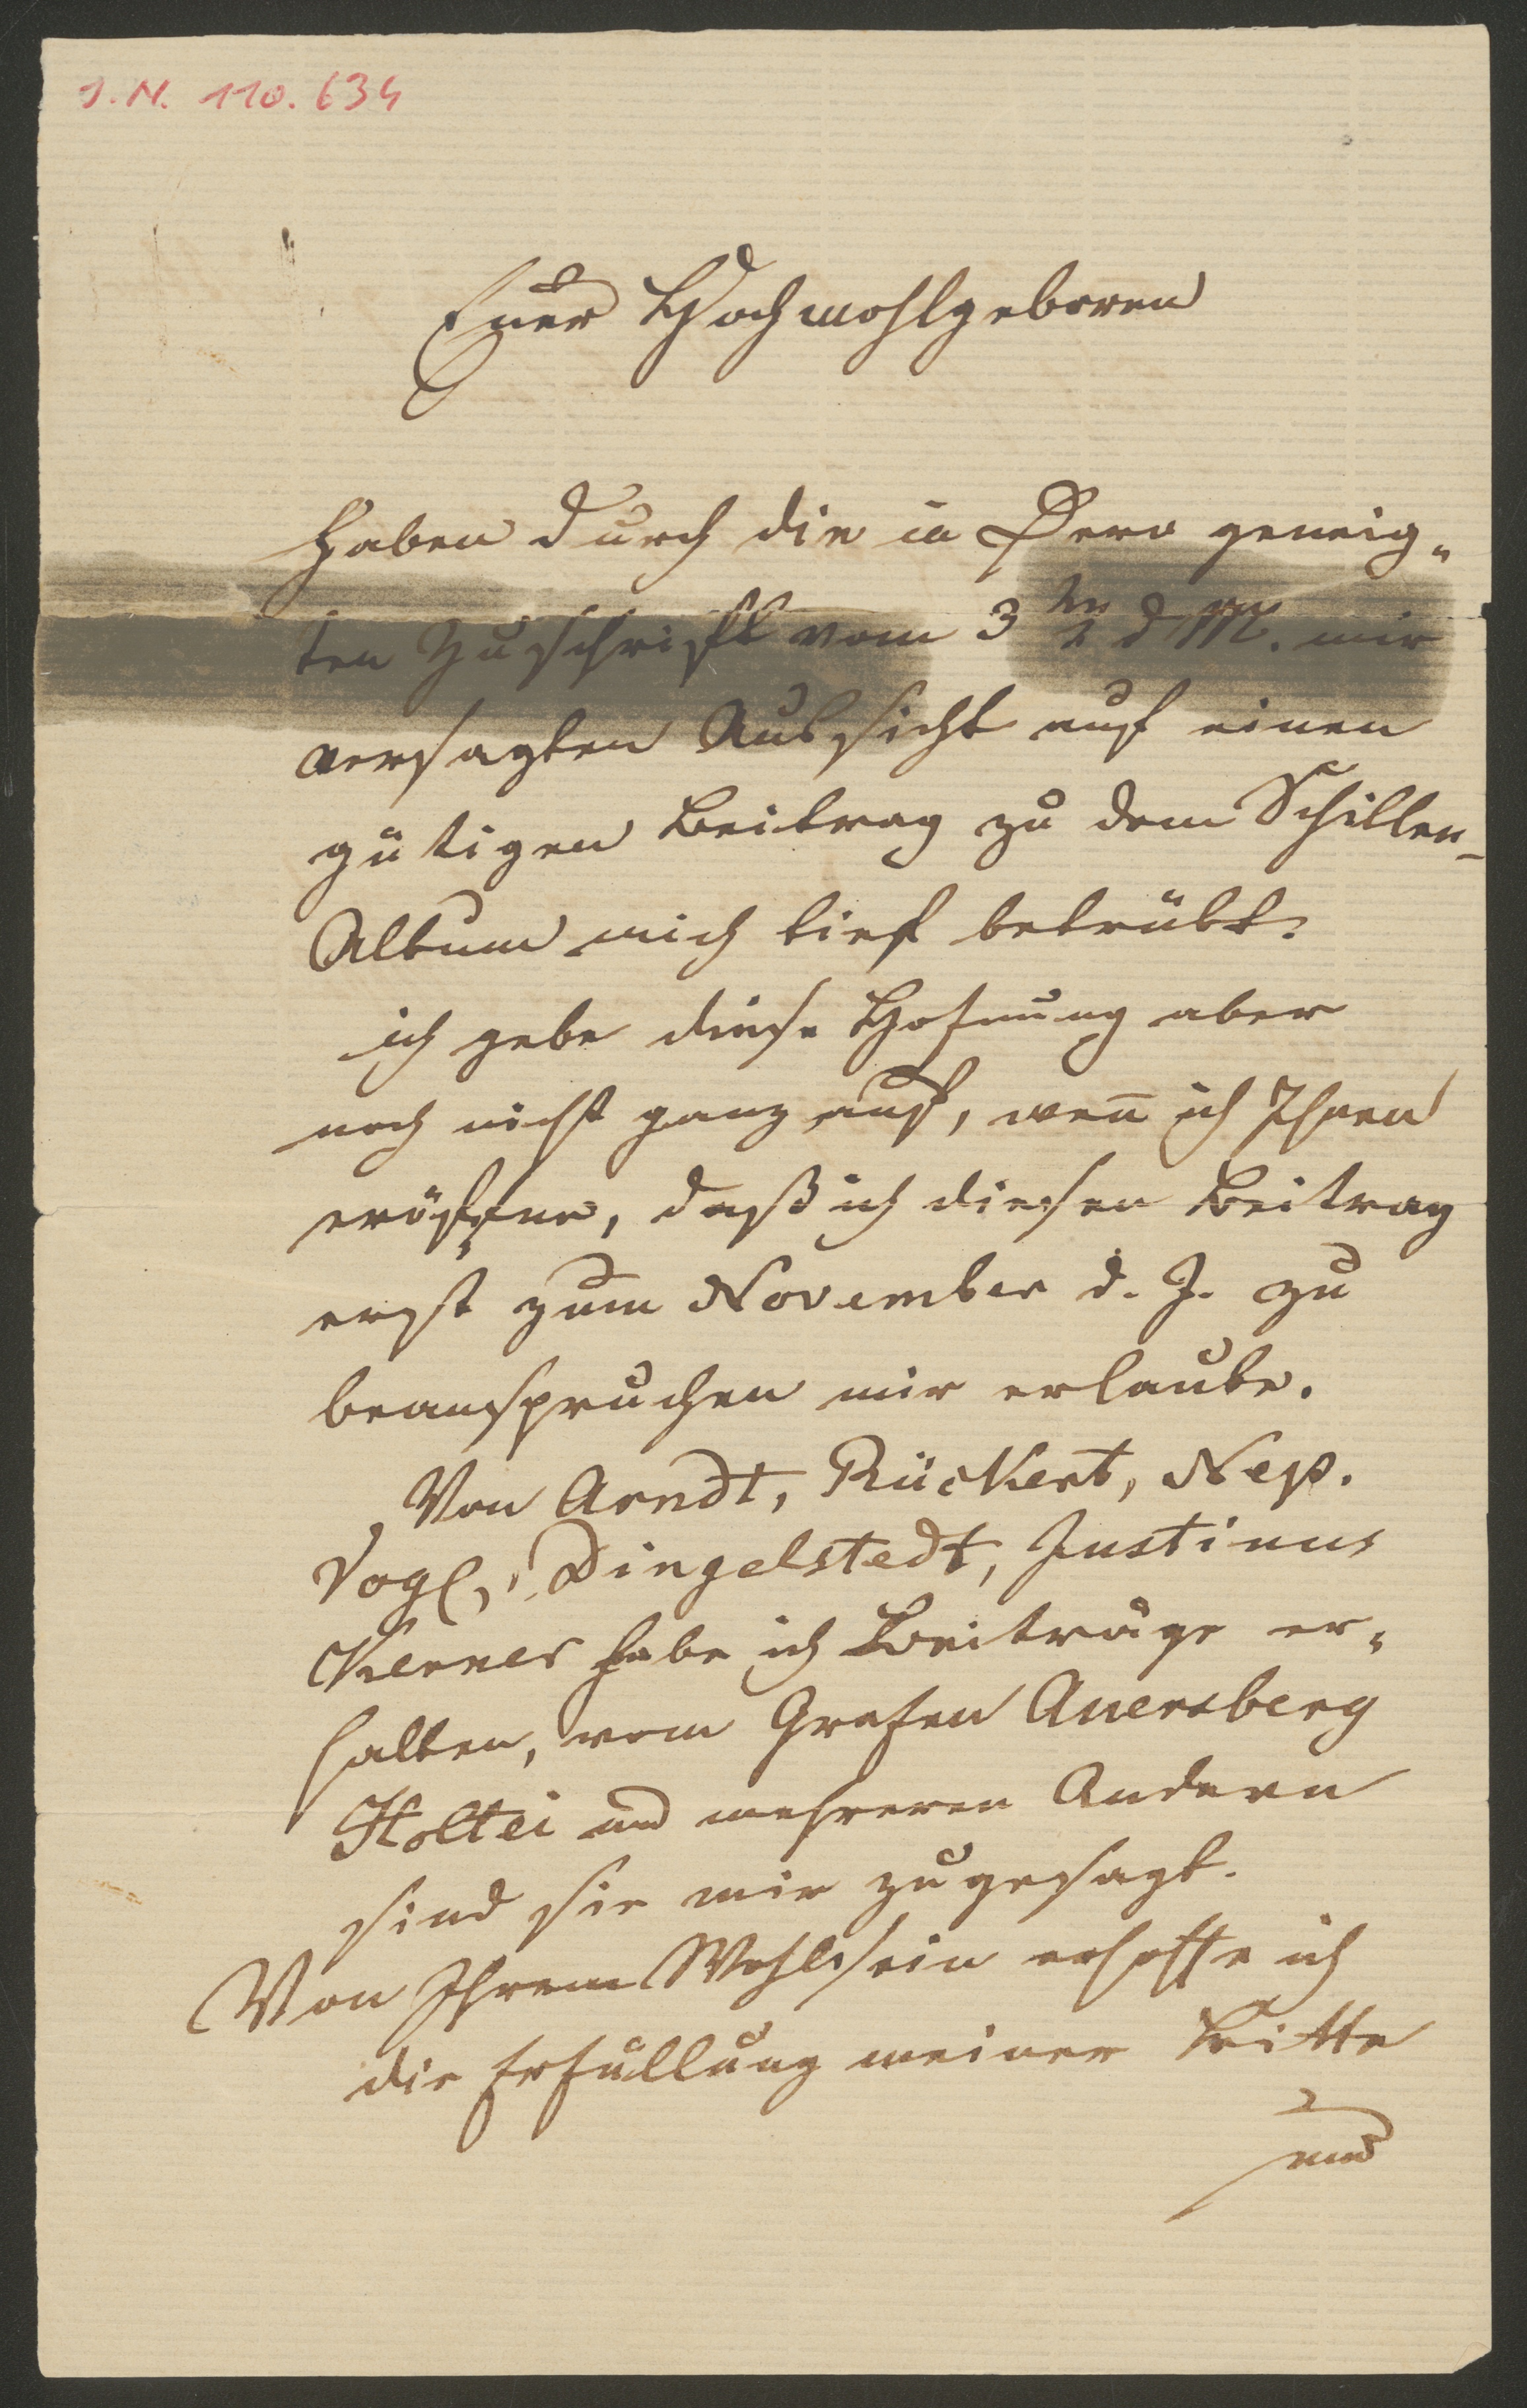 I. N. 110.634
Euer Hochwohlgeboren
haben durch die in Dero geneig„
ten Zuschrift vom 3ten d M. mir
versagten Aussicht auf einen
gütigen Beitrag zu dem Schiller-
Album mich tief betrübt.
ich gebe diese Hofnung aber
noch nicht ganz auf, weñ ich Ihnen
eröffne, daß ich diesen Beitrag
erst zum November d. J. zu
beanspruchen mir erlaube.
Von Arndt, Rückert, Nep.
Vogl, Dingelstedt, Justinus
Kerner habe ich Beiträge er„
halten, vom Grafen Auersberg
Holtei und mehreren Andern
sind sie mir zugesagt.
Von Ihrem Wohlsein erhoffe ich
die Erfüllung meiner Bitte
und